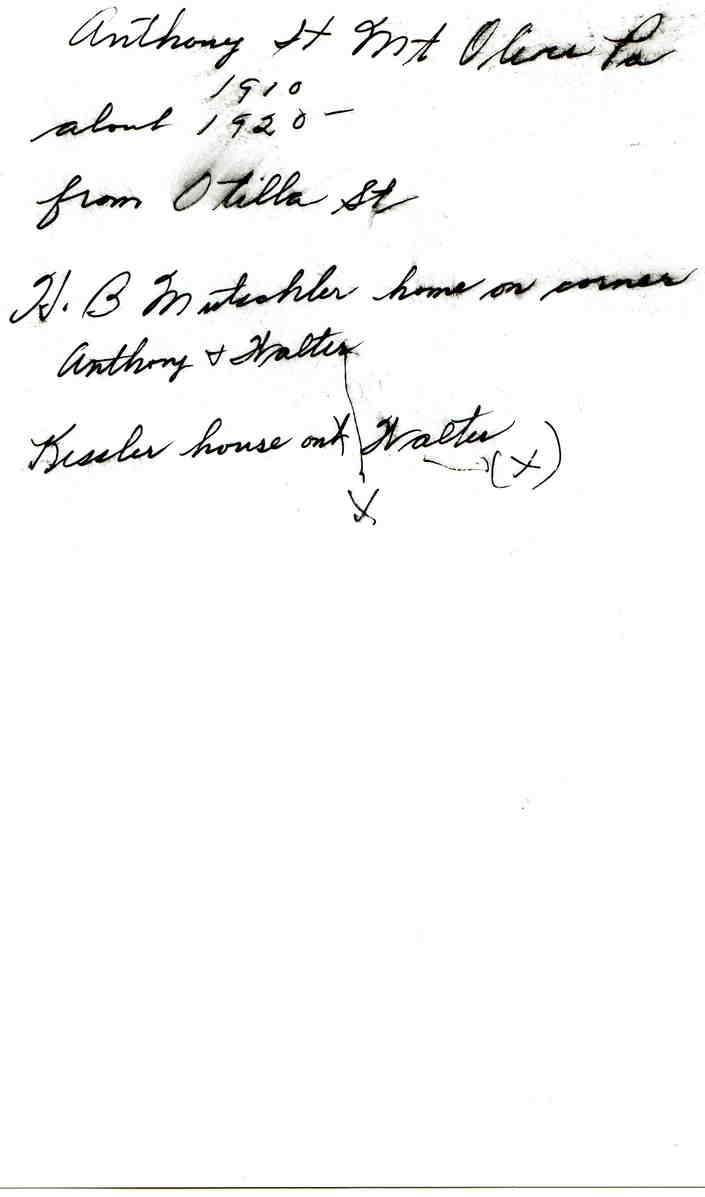 Anthony St Mt Oliver Pa
1910
about 1920 –
from Otilla St
H. B Mutschler home on corner
Anthony & Walter
Kessler house on Walter (X)
X